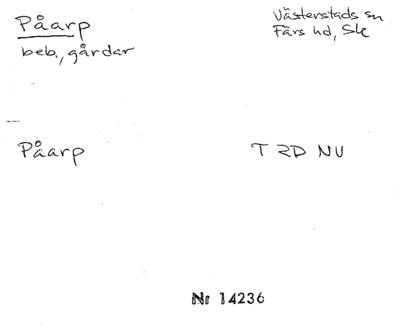 Påarp
beb., gårdar
Västerstads sn
Färs hd, Sk
Påarp
T RD NV
Nr 14236